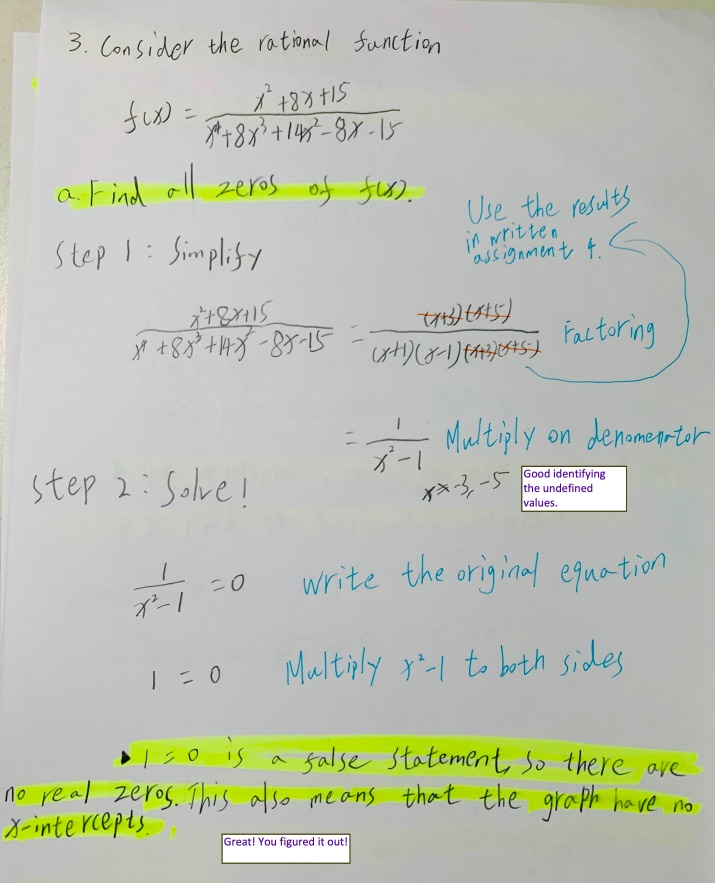 3. Consider the rational function
f(x) = x²+8x+15 / x⁴+8x³+14x²-8x-15
a. Find all zeros of f(x).
Use the results
in written
assignment 4.
Step 1: Simplify
x²+8x+15 / x⁴+8x³+14x²-8x-15 = (x+3)(x+5) / (x+1)(x-1)(x+3)(x+5) Factoring
= 1 / x²-1 Multiply on denomenator
x≠-3,-5
Good identifying
the undefined
values.
Step 2: Solve!
1 / x²-1 = 0 Write the original equation
1 = 0 Multiply x²-1 to both sides
▸ 1=0 is a false statement, so there are
no real zeros. This also means that the graph have no
x-intercepts.
Great! You figured it out!